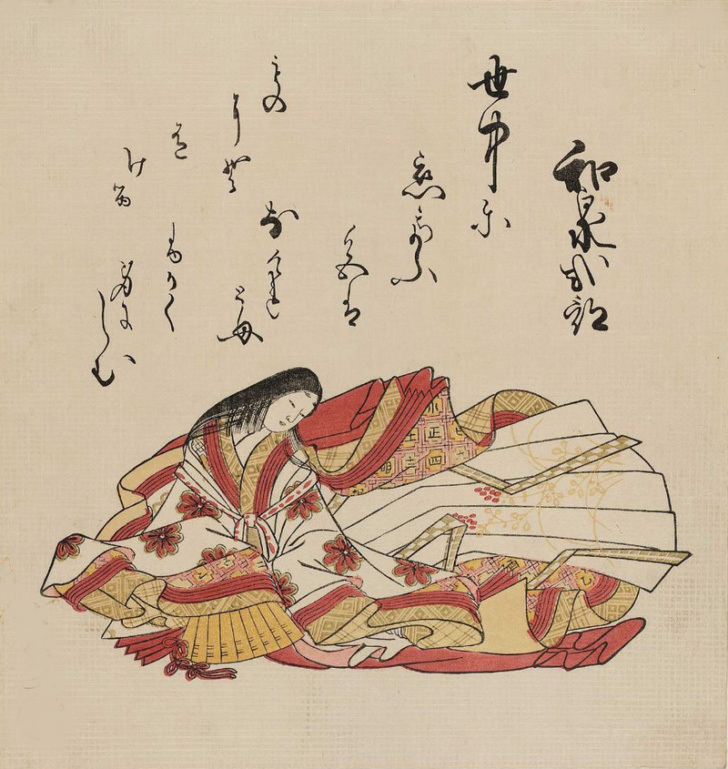 和泉式部
世中に
恋てふ
色は
なけれ
とも
ふかく
身に
しむ
もの
にそ
ける